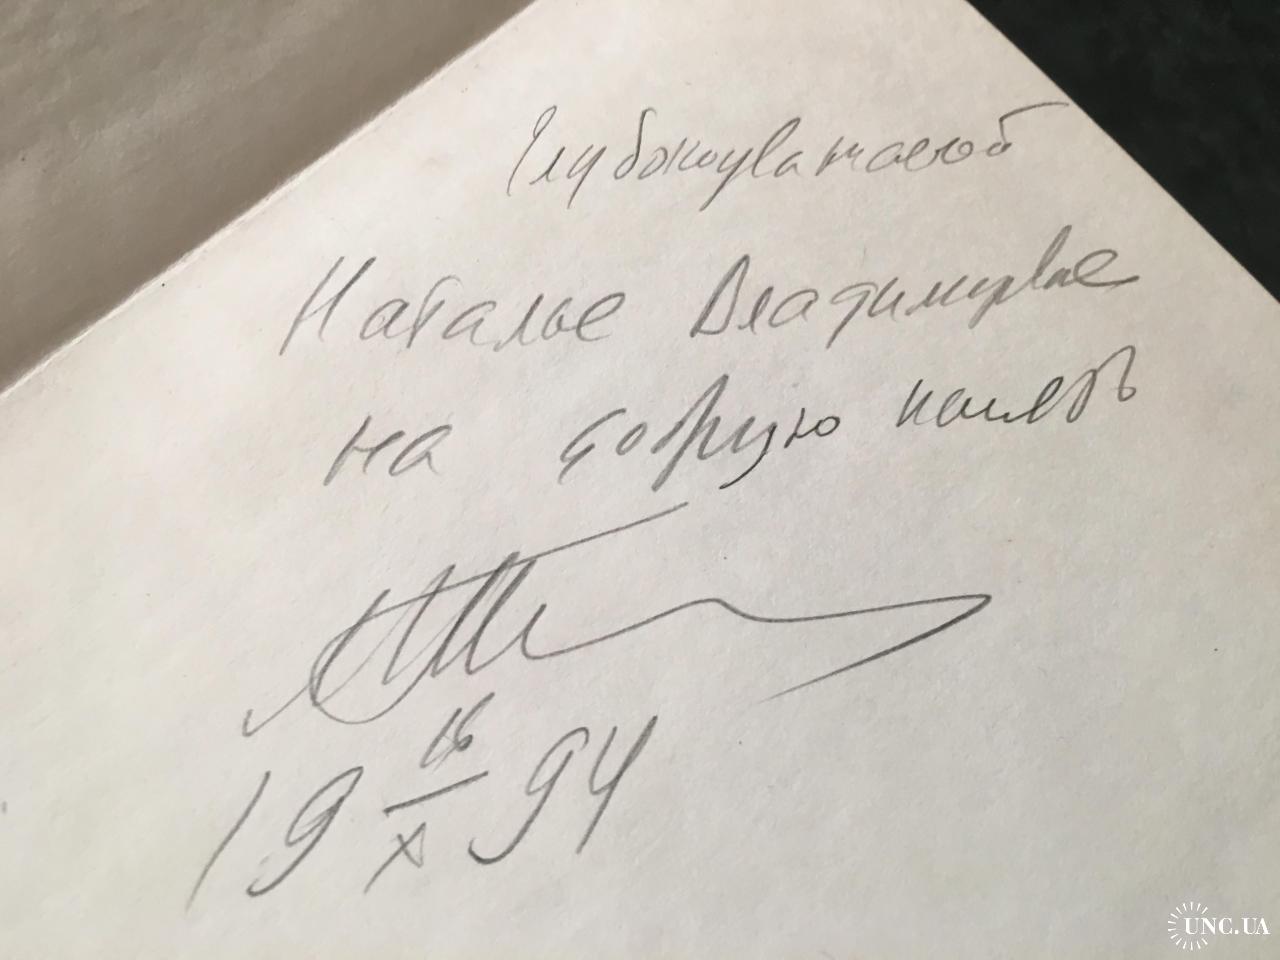 Глубокоуважаемой
Наталье Владимировне
на добрую память
19 16/X 94
UNC.UA